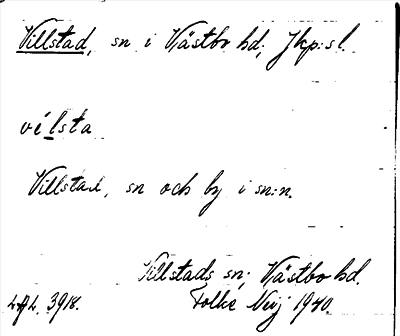 Villstad, sn i Västbo hd; Jkp:s l.
vílsta
Villstad, sn och by i sn:n.
Villstads sn; Västbo hd.
3918. Folke 1940.